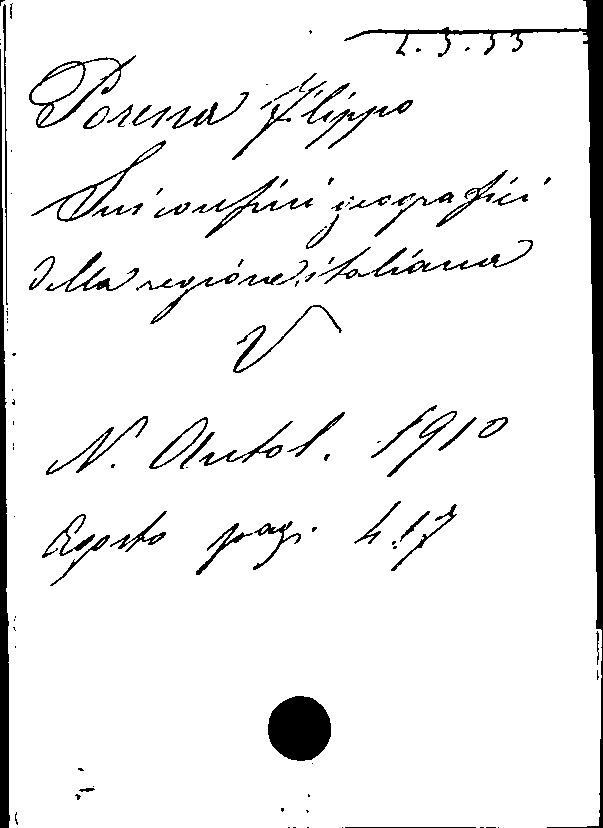 2.3.33
Porena Filippo
Sui confini geografici
della regione italiana
V
N. Antol. 1910
Agosto pag. 417